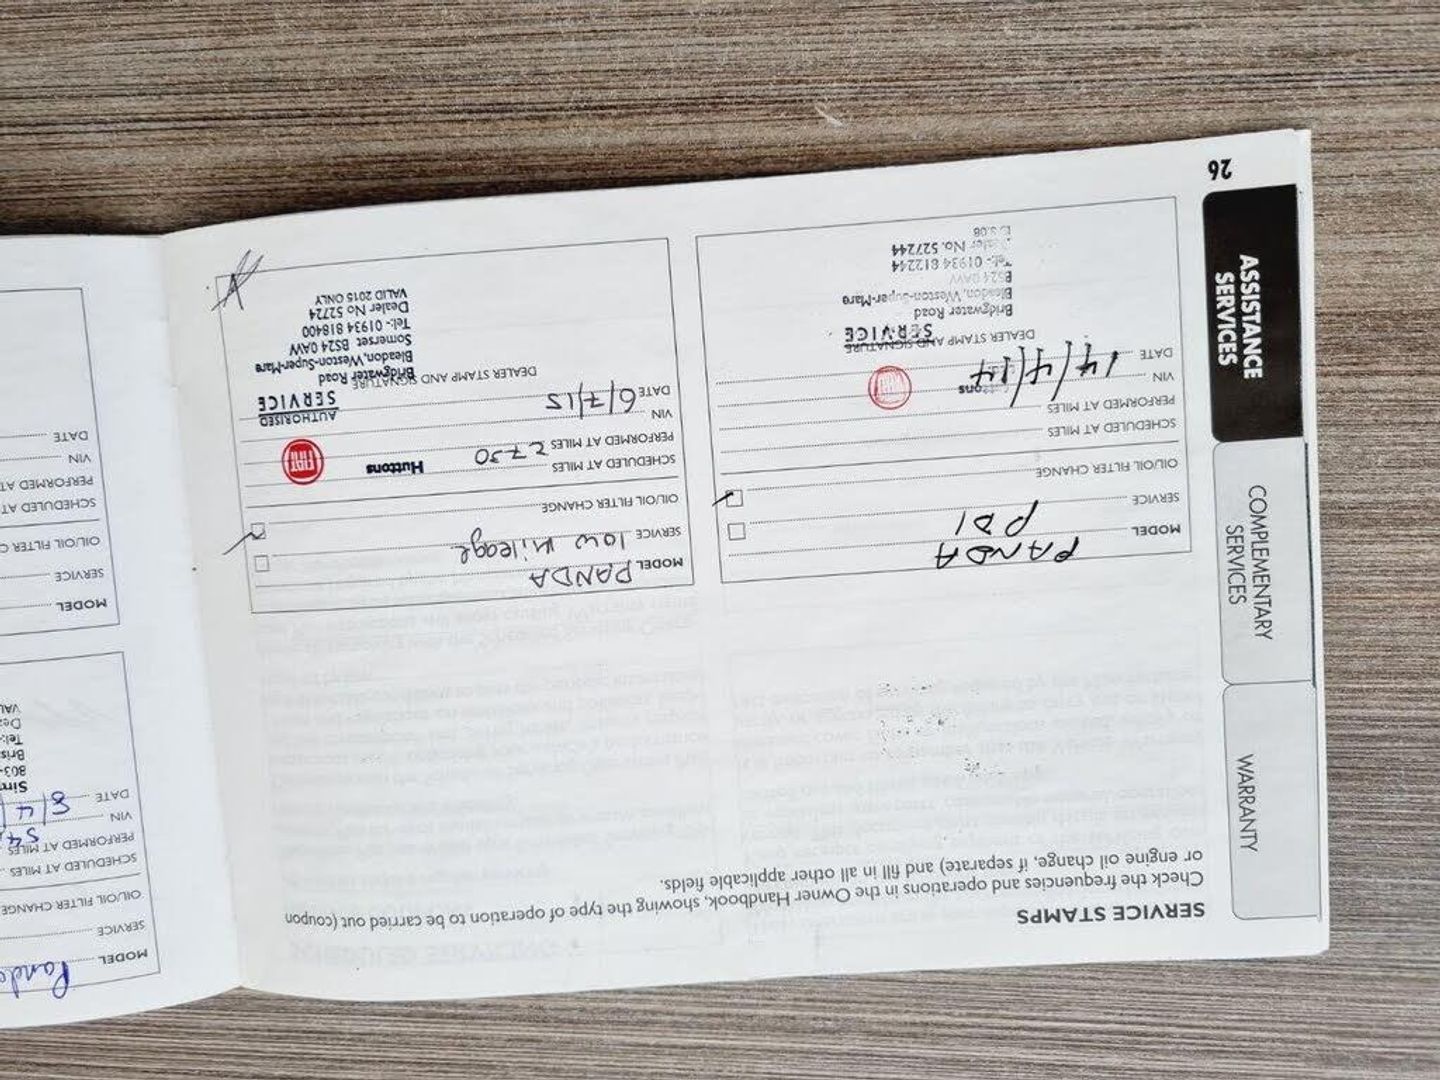 SERVICE STAMPS
Check the frequencies and operations in the Owner Handbook, showing the type of operation to be carried out (coupon
or engine oil change, if separate) and fill in all other applicable fields.
MODEL PANDA
SERVICE PDI
OIL/OIL FILTER CHANGE
SCHEDULED AT MILES
PERFORMED AT MILES
VIN
DATE 14/4/14
DEALER STAMP AND SIGNATURE
SERVICE
Bridgwater Road
Bleadon, Weston-Super-Mare
BS24 0AW
Tel:- 01934 812244
Dealer No. 527244
MODEL PANDA
SERVICE low mileage
OIL/OIL FILTER CHANGE
SCHEDULED AT MILES
PERFORMED AT MILES 2730
VIN
DATE 6/7/15
DEALER STAMP AND SIGNATURE
Huttons
FIAT
AUTHORISED
SERVICE
Bridgwater Road
Bleadon, Weston-Super-Mare
Somerset BS24 0AW
Tel:- 01934 818400
Dealer No 52724
VALID 2015 ONLY
26
ASSISTANCE
SERVICES
COMPLEMENTARY
SERVICES
WARRANTY
MODEL
SERVICE
OIL/OIL FILTER CHANGE
SCHEDULED AT MILES
PERFORMED AT MILES
VIN
DATE 8/4/
803-
Tel:-
VAL
MODEL
SERVICE
OIL/OIL FILTER C
SCHEDULED AT
PERFORMED AT
VIN
DATE